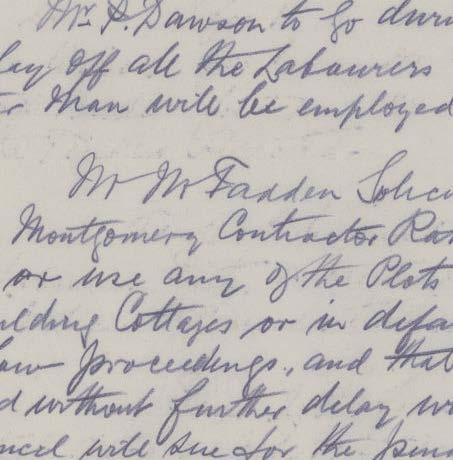 Mr. P. Dawson to go durin
lay off all the Labourers
ter Man will be employed
Mr McFadden Solici
Montgomery Contractor Rat
or use any of the Plots
ilding Cottages or in defau
law proceedings, and that
d without further delay w
ncil will sue for the pena